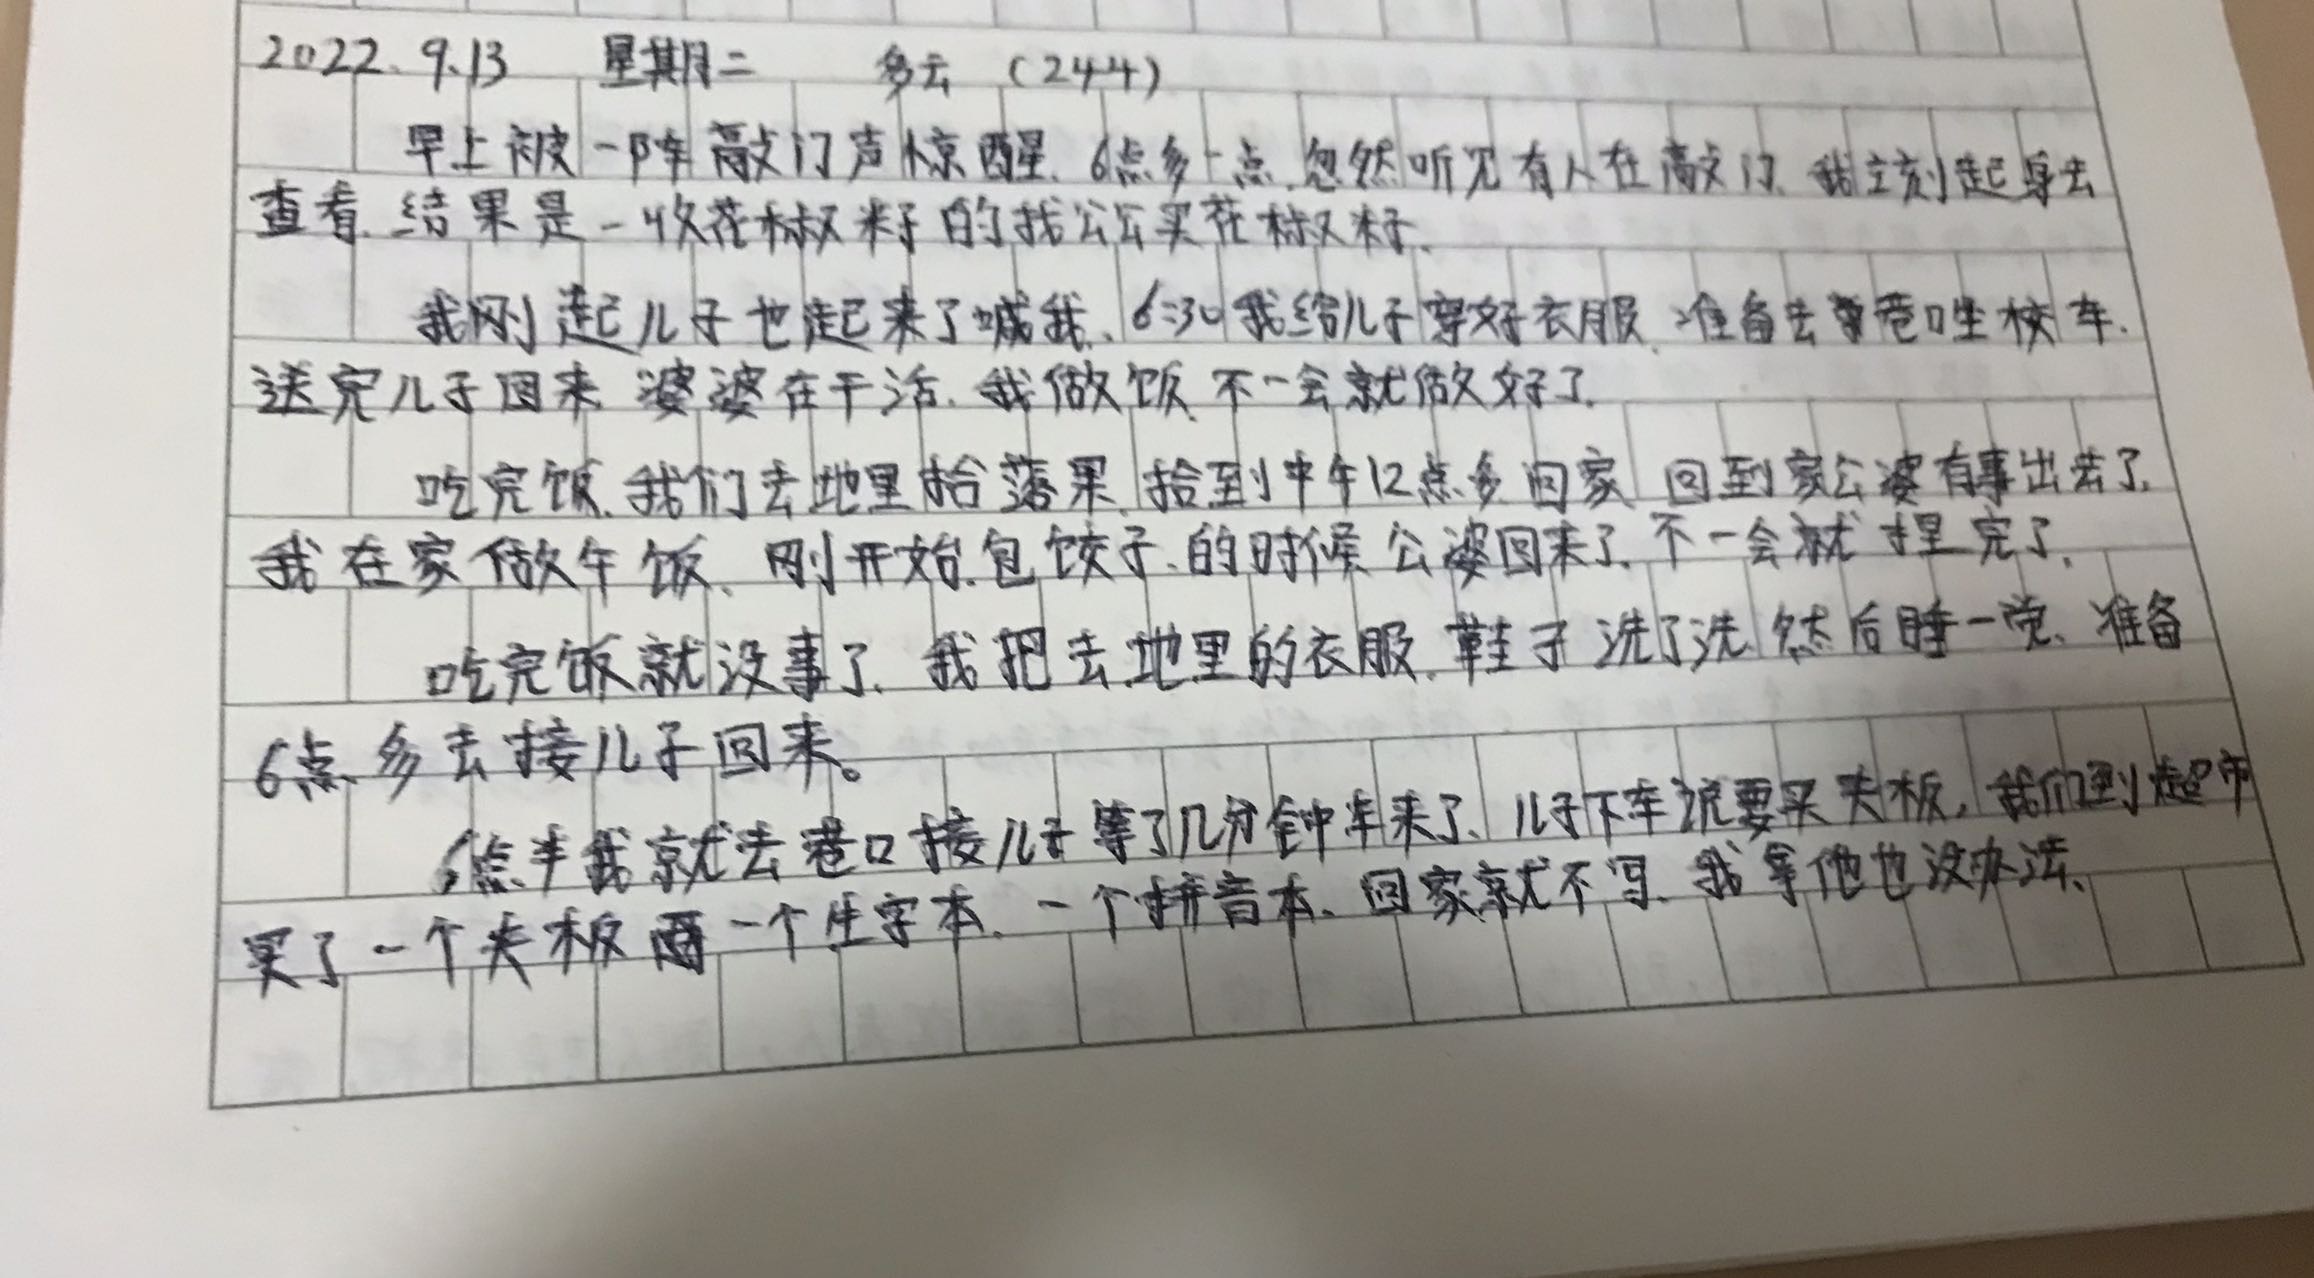 2022.9.13 星期二 多云 (244)
早上被一阵敲门声惊醒.6点多一点.忽然听见有人在敲门.我立刻起身去
查看.结果是一收花椒籽的找公公买花椒籽.
我刚起儿子也起来了喊我.6:30我给儿子穿好衣服.准备去巷口坐校车.
送完儿子回来.婆婆在干活.我做饭.不一会就做好了.
吃完饭.我们去地里拾落果.拾到中午12点多回家.回到家公婆有事出去了.
我在家做午饭、刚开始.包饺子.的时候.公婆回来了.不一会就捏完了.
吃完饭就没事了.我把去地里的衣服.鞋子洗了洗.然后睡一觉、准备
6点多去接儿子回来。
6点半我就去巷口接儿子等了几分钟车来了.儿子下车说要买夹板,我们到超市
买了一个夹板一个生字本.一个拼音本.回家就不写.我拿他也没办法、